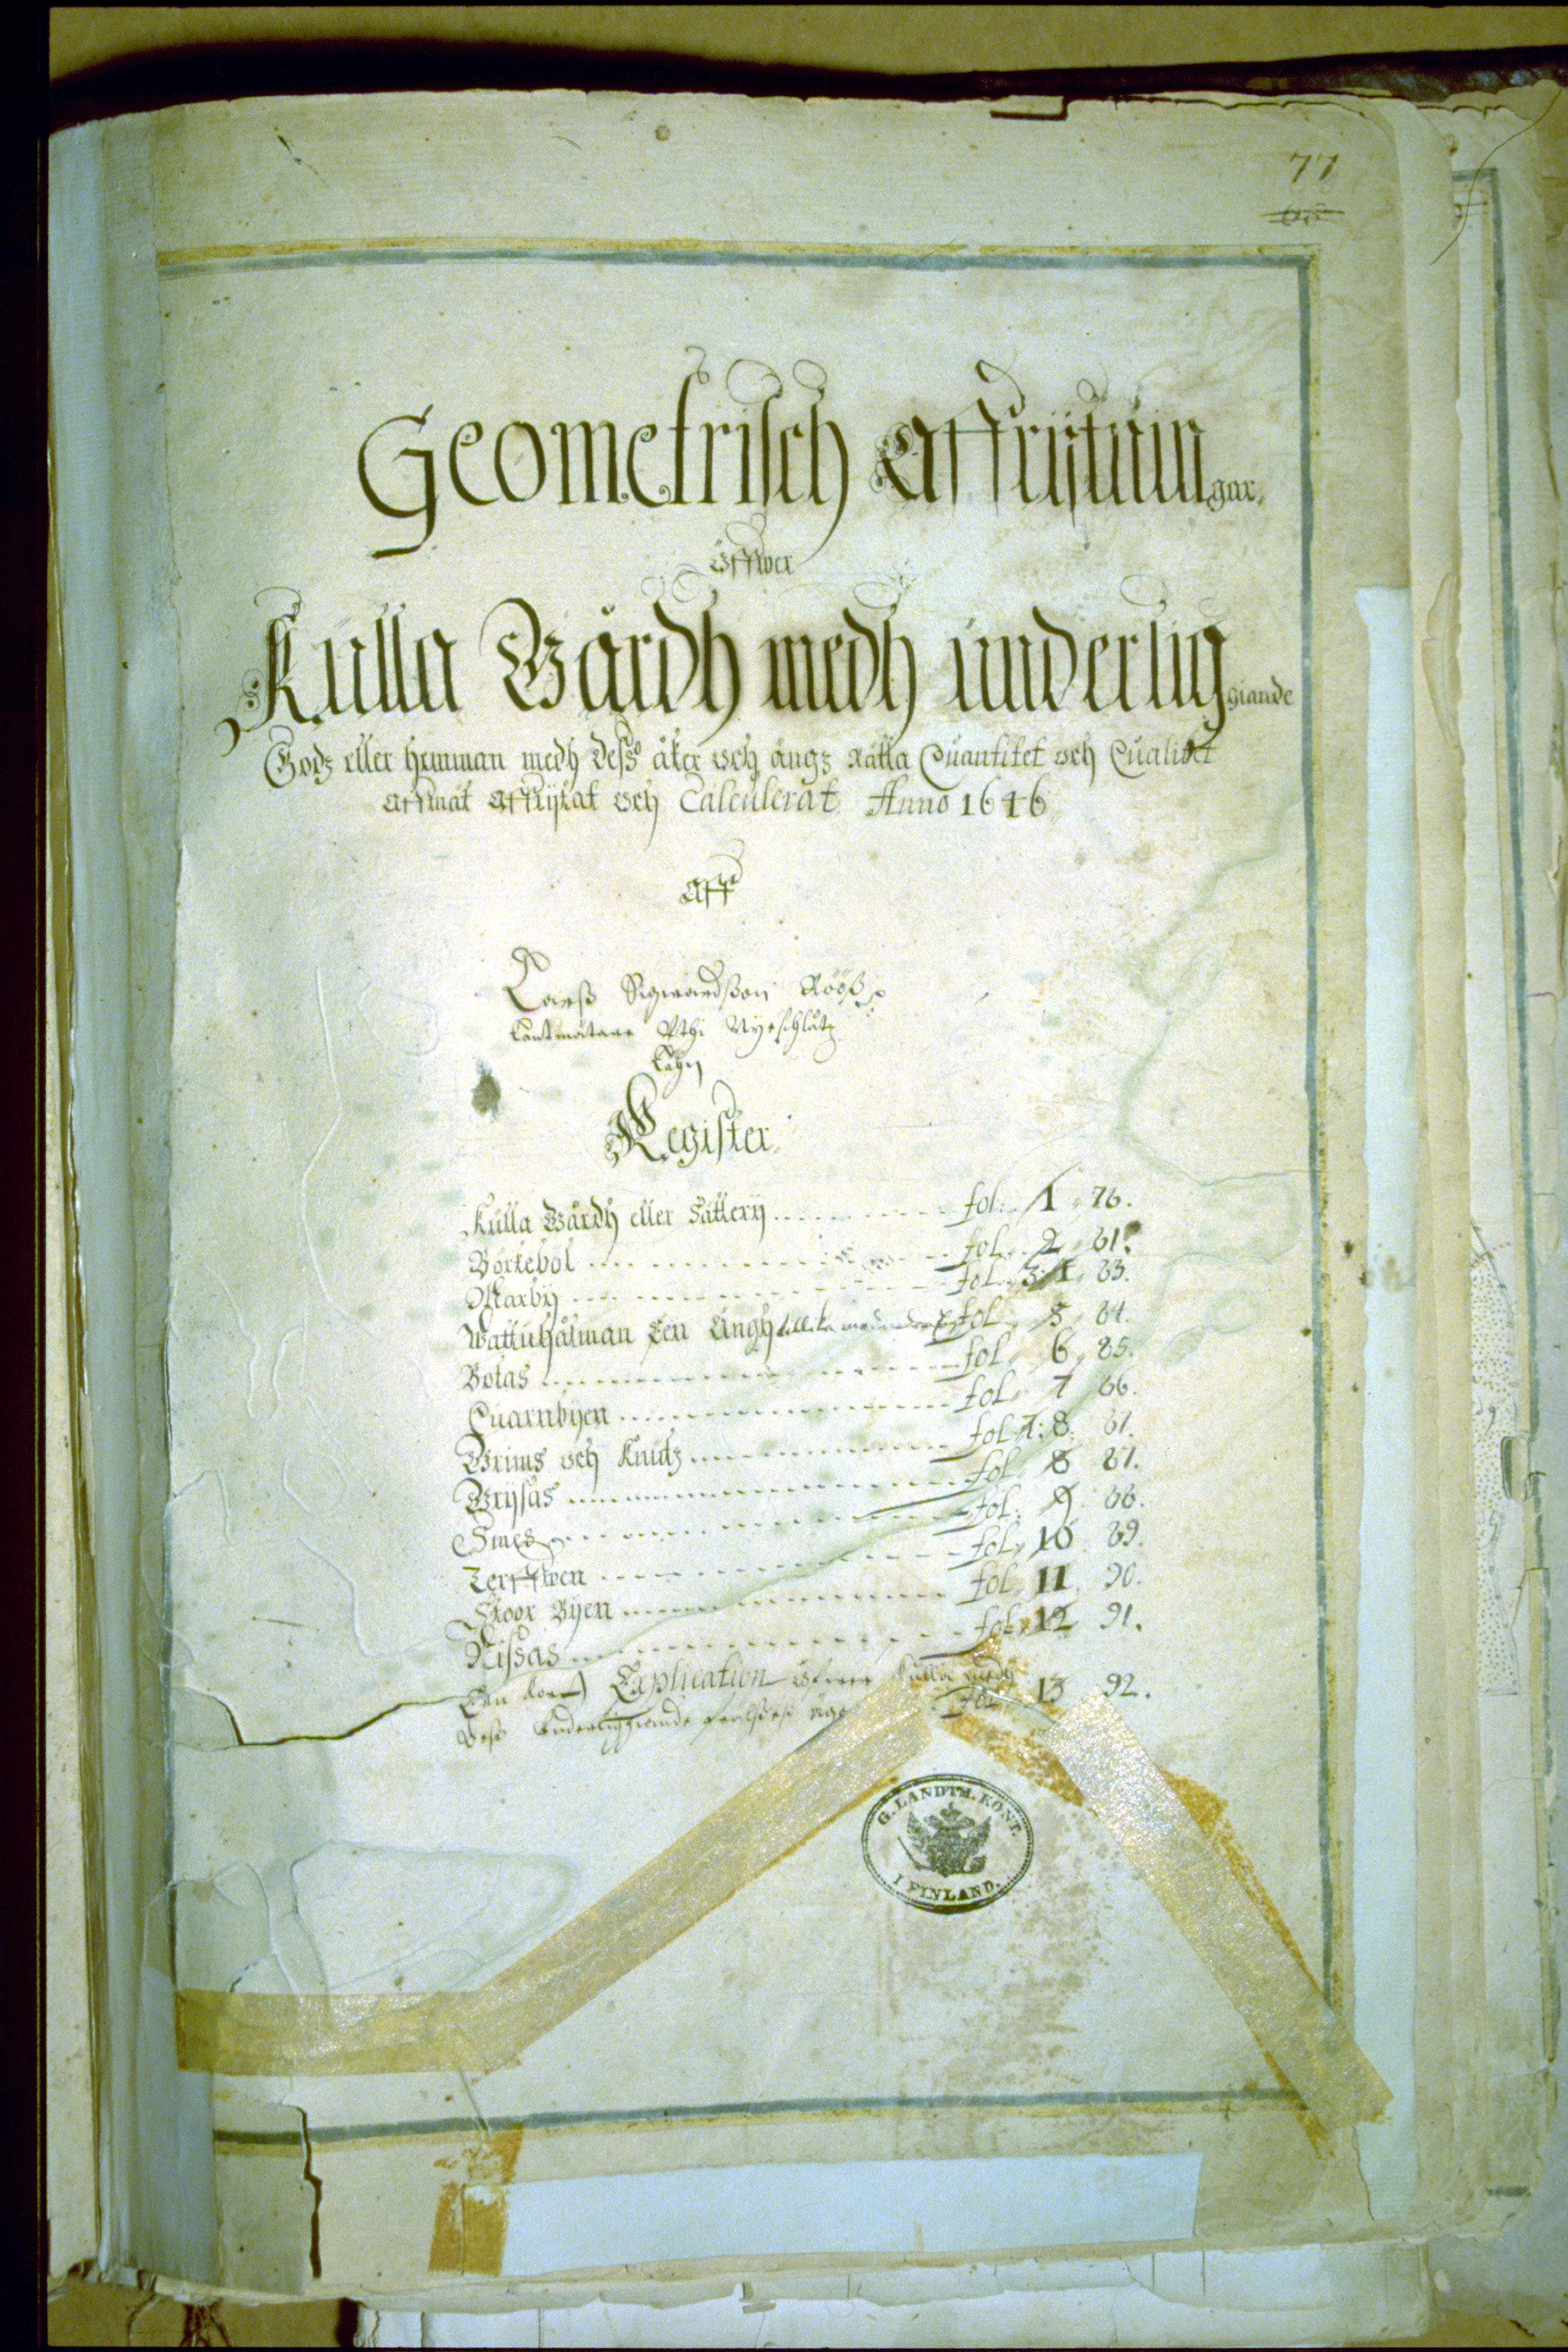 77
Geometrisch Affrijtnin
gar.
Öffwer
Kulla Gårdh medh underlig
giande
Godz eller hemman medh dess åker och ängz rätta Quantitet och Qualitet
Affmät Affrijtat och Calculerat Anno 1646
Aff
Larss Sigwardsson Rööss
Lantmätare Vthi Nyeschlåtz
Lähn
Register
Kulla Gårdh eller Sätterij fol: 1 78.
Börtebol fol. 2 81.
Marby fol. 3: 4 83.
Wattuhålman Een Ängh fol 5 84.
Botas fol. 6 85.
Quarnbyen fol. 7 86.
Grims och Knutz fol 7: 8. 87.
Grijsas fol 8 87.
Smeds fol. 9 88.
Terffwen fol. 10 89.
Stoor Byen fol. 11. 90.
Nissas fol. 12 91.
Een Kort Explication öfwer Kulla medh
Dess Underliggiande fol 13 92.
G. LANDTM. KONT.
I FINLAND.